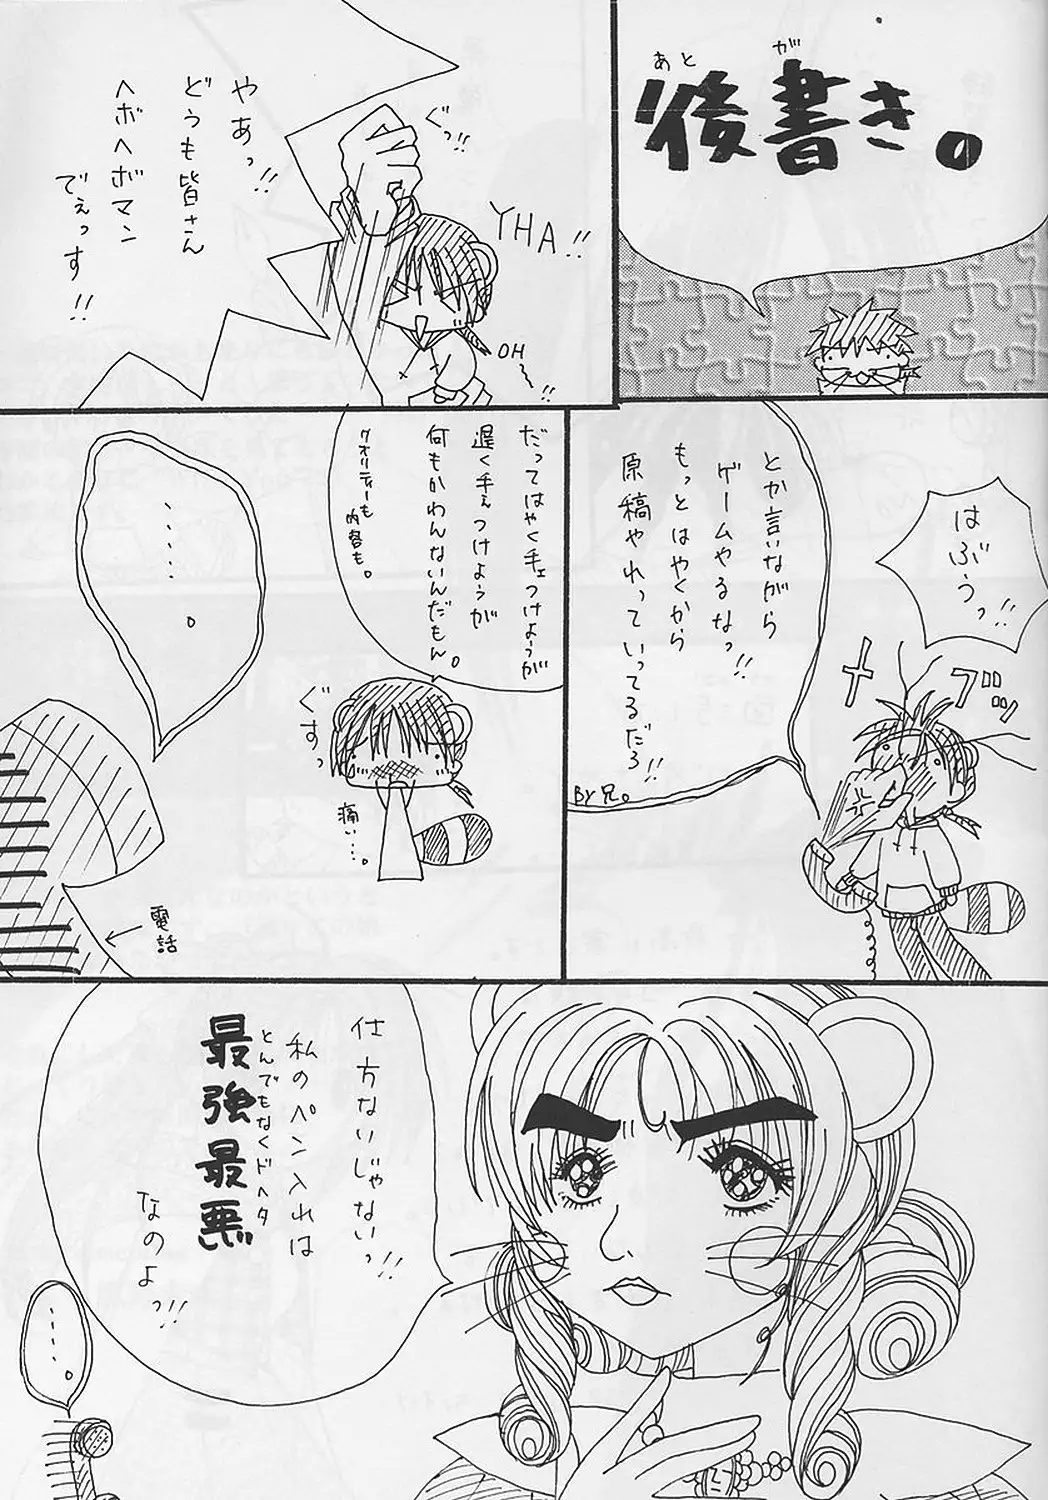 あとが
後書き。
やあっ!!
どうも皆さん
ヘボヘボマン
でぇっす!!
ぐっ!!
YHA!!
OH
!!
はぶうっ!!
ブツッ
とか言いながら
ゲームやるなっ!!
もっとはやくから
原稿やれっていってるだろ!!
BY兄。
だってはやく手ェつけようが
遅く手ぇつけようが
何もかわんないんだもん。
クオリティーも
内容も。
ぐすっ
痛い…。
……。
電話
仕方ないじゃないっ!!
私のペン入れは
とんでもなくドヘタ
最強最悪
なのよっ!!
……。